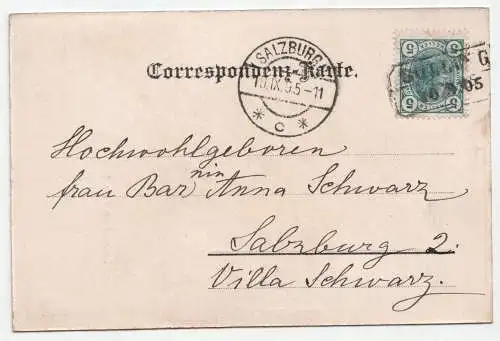 Correspondenz-Karte.
SALZBURG
10.IX.5.5-11
* C *
5 5
5 5
05
Hochwohlgeboren
frau Bar nin Anna Schwarz
Salzburg 2.
Villa Schwarz.